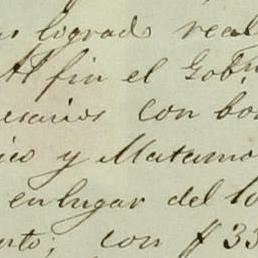 logrado real
Al fin el Gobr.
esarios con bo
ico y Matamo
en lugar del lo
nto; con $ 33